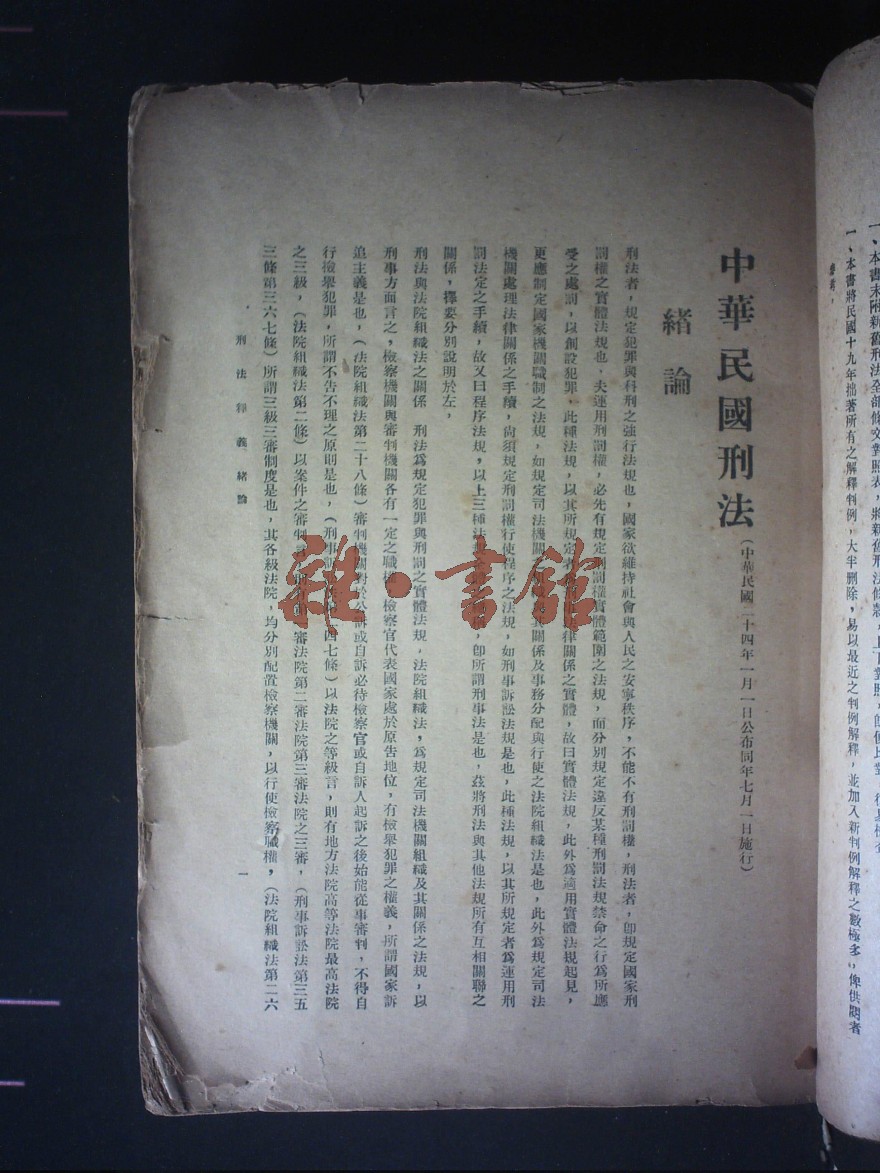 一、本書末附新舊刑法全部條文對照表，將新舊刑法條
一、本書將民國十九年拙著所有之解釋判例，大半删除，易以最近之判例解釋，並加入新判例解釋之數極多，俾供閱者
中華民國刑法（中華民國二十四年一月一日公布同年七月一日施行）
緒論
刑法者，規定犯罪與科刑之強行法規也，國家欲維持社會與人民之安寧秩序，不能不有刑罰權，刑法者，卽規定國家刑
罰權之實體法規也，夫運用刑罰權，必先有規定刑罰權實體範圍之法規，而分別規定違反某種刑罰法規禁命之行爲所應
受之處罰，以創設犯罪，此種法規，以其所規定者律關係之實體，故曰實體法規，此外爲適用實體法規起見，
更應制定國家機關職制之法規，如規定司法機關之其關係及事務分配與行使之法院組織法是也，此外爲規定司法
機關處理法律關係之手續，尙須規定刑罰權行使程序之法規，如刑事訴訟法規是也，此種法規，以其所規定者爲運用刑
罰法定之手續，故又曰程序法規，以上三種法，卽所謂刑事法是也，茲將刑法與其他法規所有互相關聯之
關係，擇要分別說明於左，
刑法與法院組織法之關係　刑法爲規定犯罪與刑罰之實體法規，法院組織法，爲規定司法機關組織及其關係之法規，以
刑事方面言之，檢察機關與審判機關各有一定之職權，檢察官代表國家處於原告地位，有檢舉犯罪之權義，所謂國家訴
追主義是也，（法院組織法第二十八條）審判機關對於公訴或自訴必待檢察官或自訴人起訴之後始能從事審判，不得自
行檢舉犯罪，所謂不告不理之原則是也，（刑事訴四七條）以法院之等級言，則有地方法院高等法院最高法院
之三級，（法院組織法第二條）以案件之審判言，則有第一審法院第二審法院第三審法院之三審，（刑事訴訟法第三五
三條第三六七條）所謂三級三審制度是也，其各級法院，均分別配置檢察機關，以行使檢察職權，（法院組織法第二六
刑法釋義　緒論
一
雜·書館